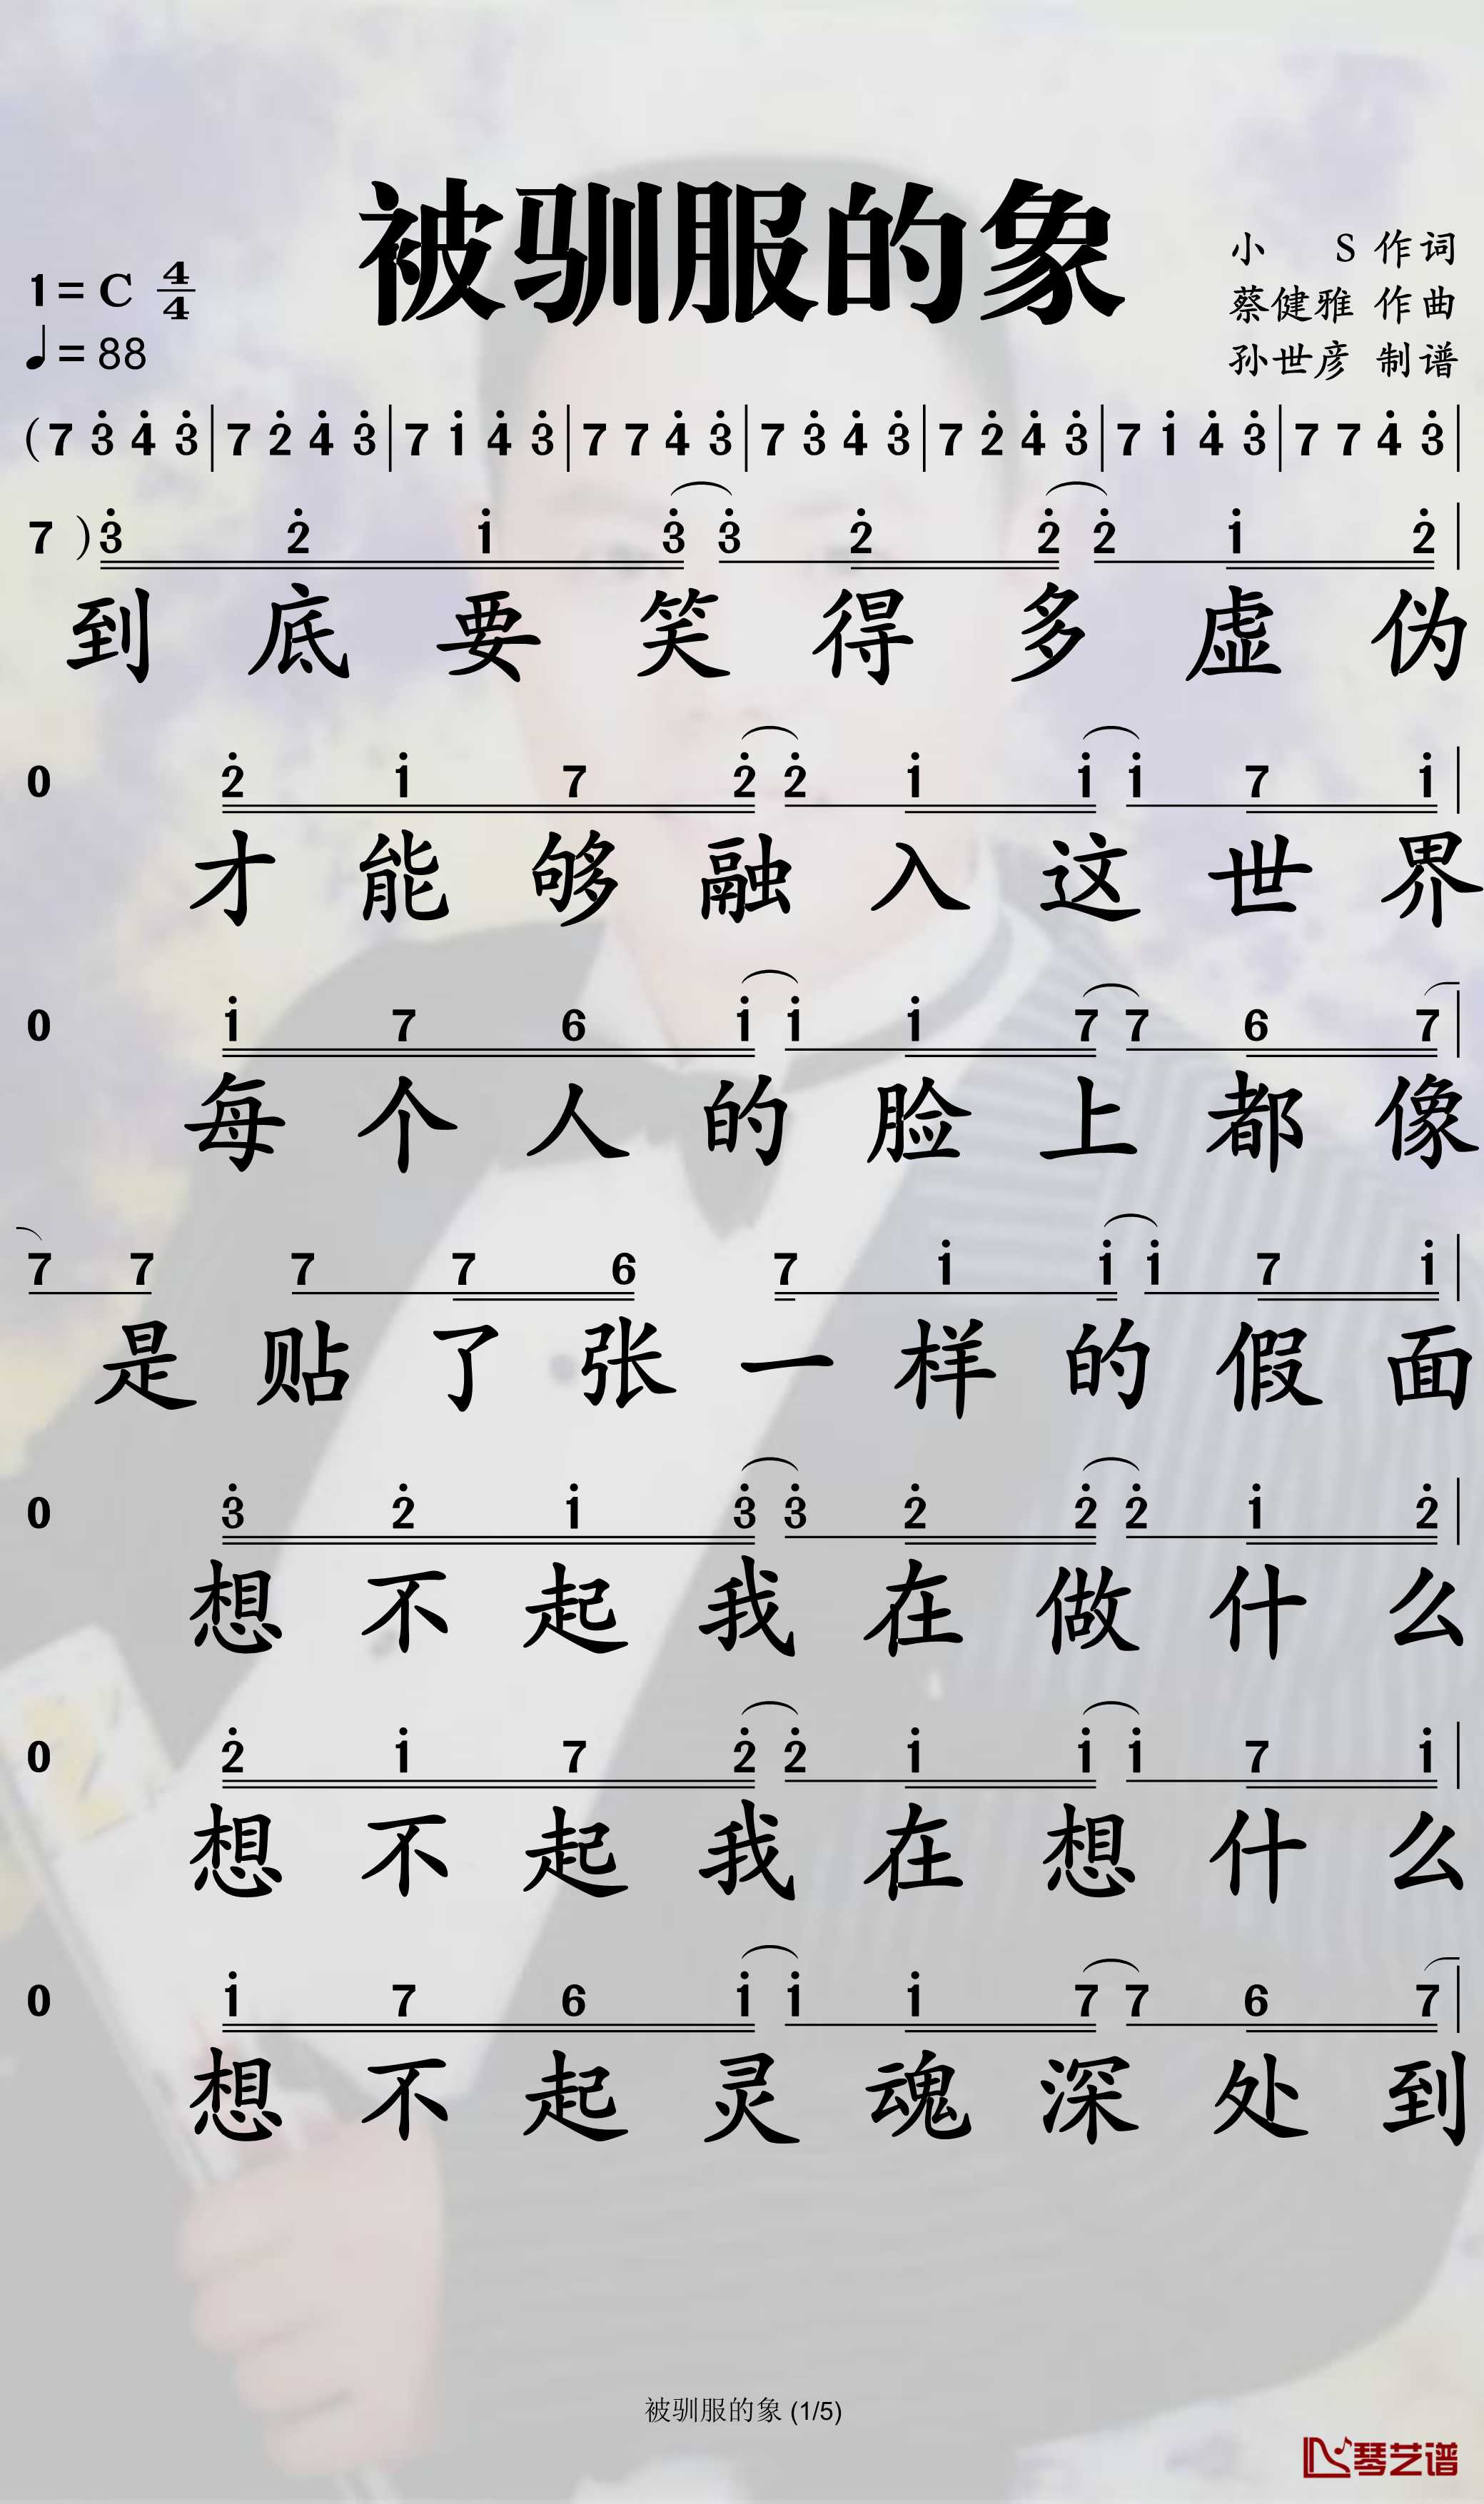 被驯服的象
小 S 作词
1=C 4/4
蔡健雅 作曲
♩=88
孙世彦 制谱
(7 3̇ 4̇ 3̇ | 7 2̇ 4̇ 3̇ | 7 1̇ 4̇ 3̇ | 7 7 4̇ 3̇ | 7 3̇ 4̇ 3̇ | 7 2̇ 4̇ 3̇ | 7 1̇ 4̇ 3̇ | 7 7 4̇ 3̇ |
7 ) 3̇ 2̇ 1̇ 3̇ 3̇ 2̇ 2̇ 2̇ 1̇ 2̇ |
到底要笑得多虚伪
0 2̇ 1̇ 7 2̇ 2̇ 1̇ 1̇ 1̇ 7 1̇ |
才能够融入这世界
0 1̇ 7 6 1̇ 1̇ 1̇ 7 7 6 7 |
每个人的脸上都像
7 7 7 7 6 7 1̇ 1̇ 1̇ 7 1̇ |
是贴了张一样的假面
0 3̇ 2̇ 1̇ 3̇ 3̇ 2̇ 2̇ 2̇ 1̇ 2̇ |
想不起我在做什么
0 2̇ 1̇ 7 2̇ 2̇ 1̇ 1̇ 1̇ 7 1̇ |
想不起我在想什么
0 1̇ 7 6 1̇ 1̇ 1̇ 7 7 6 7 |
想不起灵魂深处到
被驯服的象 (1/5)
琴艺谱